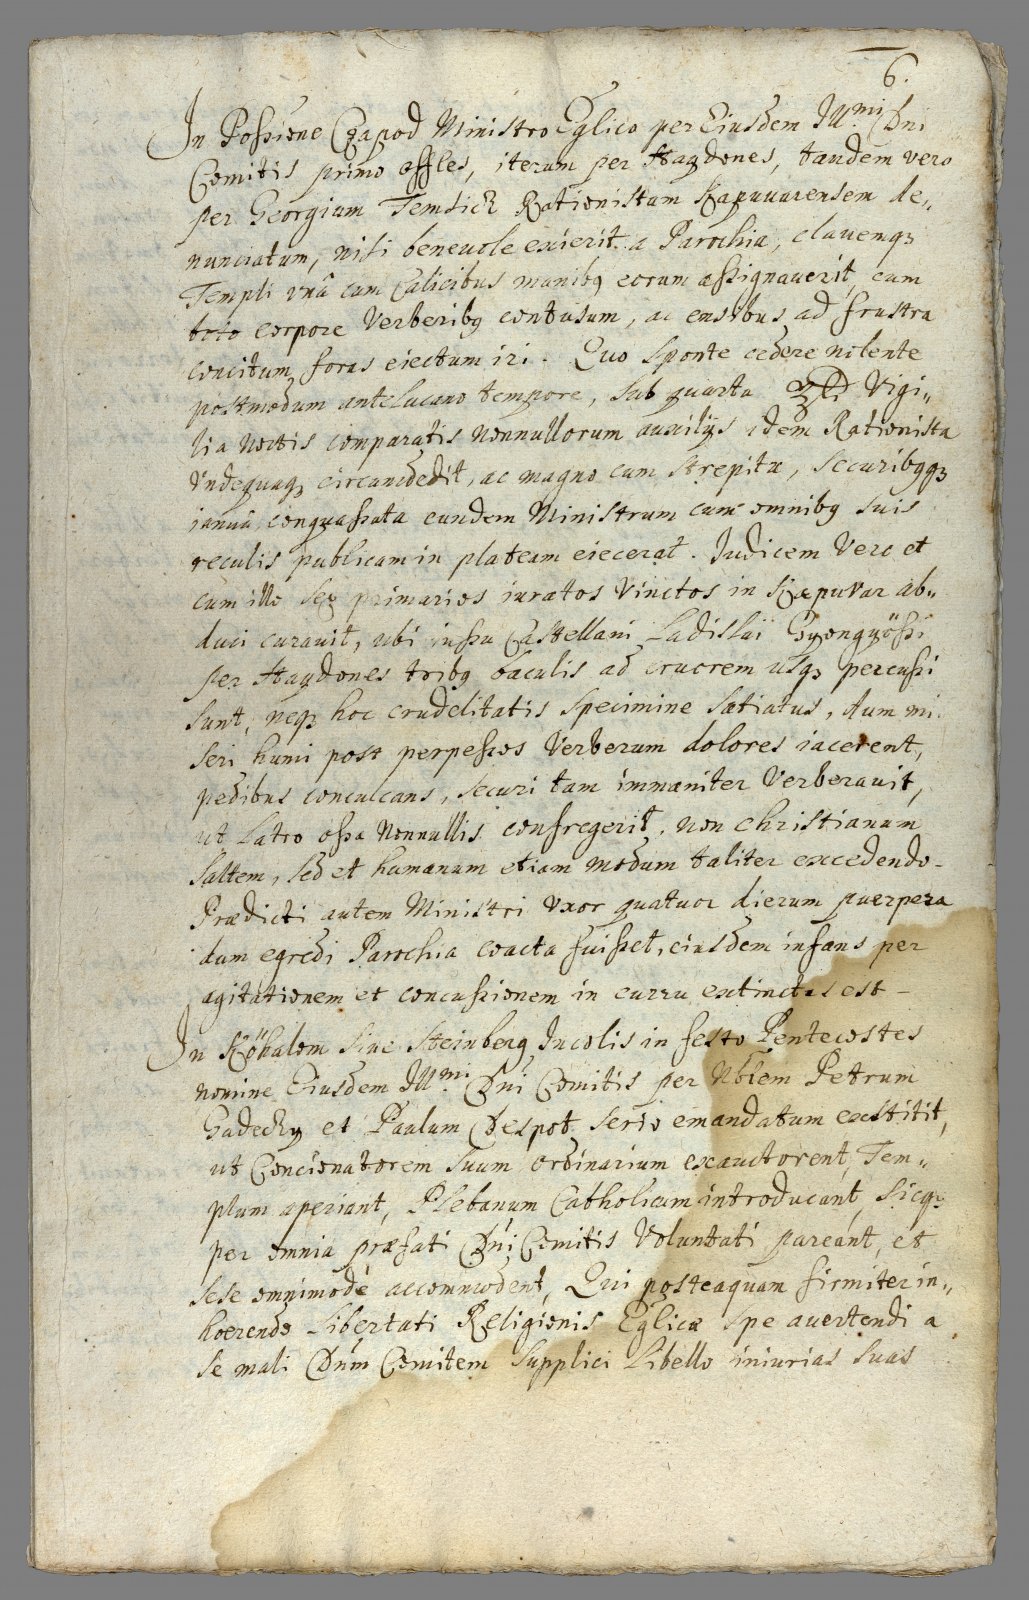 6.
In Possione Czapod Ministro Eglico per Eiusdem Illmi Dni
Comitis primo offles, iterum per Haydones, tandem vero
per Georgium Temlich Rationistam Kapuvarensem de„
nunciatum, nisi beneuole exierit a Parochia, clauemqȝ
Templi vnâ cum Calicibus manibꝫ eorum assignauerit, eum
toto corpore Verberibꝫ contusum, ac ensibus ad frustra
concitum foras eiectum iri. Quo sponte cedere nitente
postmodum antelucano tempore, sub quarta Vigi„
lia Noctis comparatis Nonnullorum auxilijs idem Rationista
Vndequaqȝ circumdedit, ac magno cum strepitu, securibꝫqȝ
ianuâ conquassata eundem Ministrum cum omnibꝫ suis
reculis publicam in plateam eiecerat. Iudicem Vero et
cum illo sex primarios iuratos Vinctos in Kapuvar ab„
duci curauit, ubi iussu Castellani Ladislai Gyongyössi
per Haydones tribꝫ baculis ad cruorem usqȝ percussi
sunt, neqȝ hoc crudelitatis specimine satiatus, dum mi.
seri humi post perpessos Verberum dolores iacerent,
pedibus conculcans, securi tam immaniter Verberauit,
ut Latro ossa Nonnullis confregerit, non christianum
saltem, sed et humanum etiam modum taliter excedendo-
Prædicti autem Ministri Vxor quatuor dierum puerpera
dum egredi Parochia coacta fuisset, eiusdem infans per
agitationem et concussionem in curru extinctus est -
In Köhalom siue Steinberg Incolis in festo Pentecostes
nomine Eiusdem Illmi Dni Comitis per Nblem Petrum
Gadechy et Paulum Despot serio emandatum exstitit,
ut Concionatorem suum ordinarium exauctorent, Tem„
plum aperiant, Plebanum Catholicum introducant, sicqȝ
per omnia præfati Dni Comitis Voluntati pareant, et
sese omnimodè accommodent, Qui posteaquam firmiter in„
hoerendo libertati Religionis Eglicæ spe auertendi a
se mali Dnm Comitem supplici Libello iniurias suas